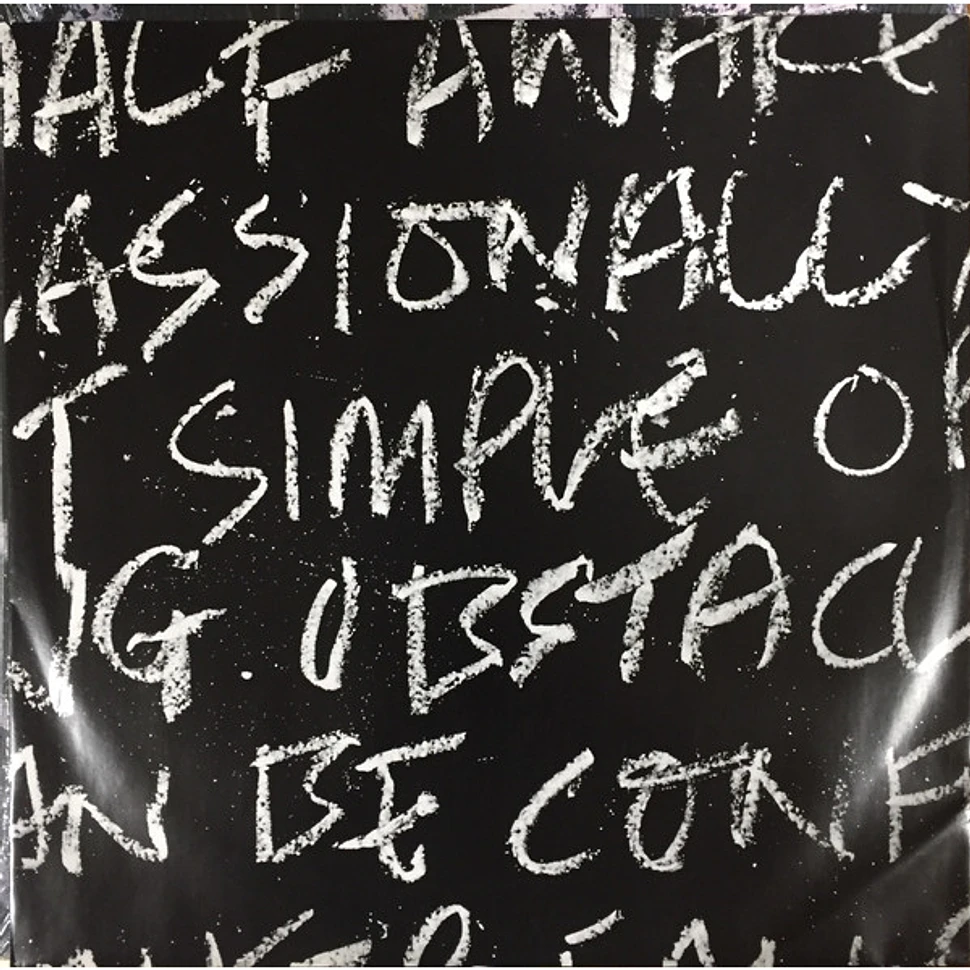 HALF AWAKE
ASSIONALLY
T SIMPLE O
G. OBSTACL
AN BE CONF